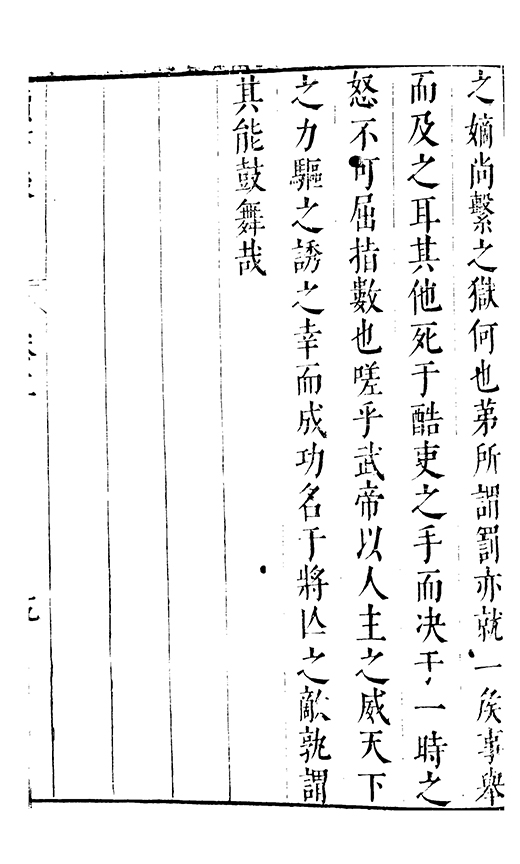 之嫡尚繫之獄何也苐所謂罰亦就一矦事舉
而及之耳其他死于酷吏之手而决于一時之
怒不可屈指數也嗟乎武帝以人主之威天下
之力驅之誘之幸而成功名于將亾之敵孰謂
其能鼓舞哉